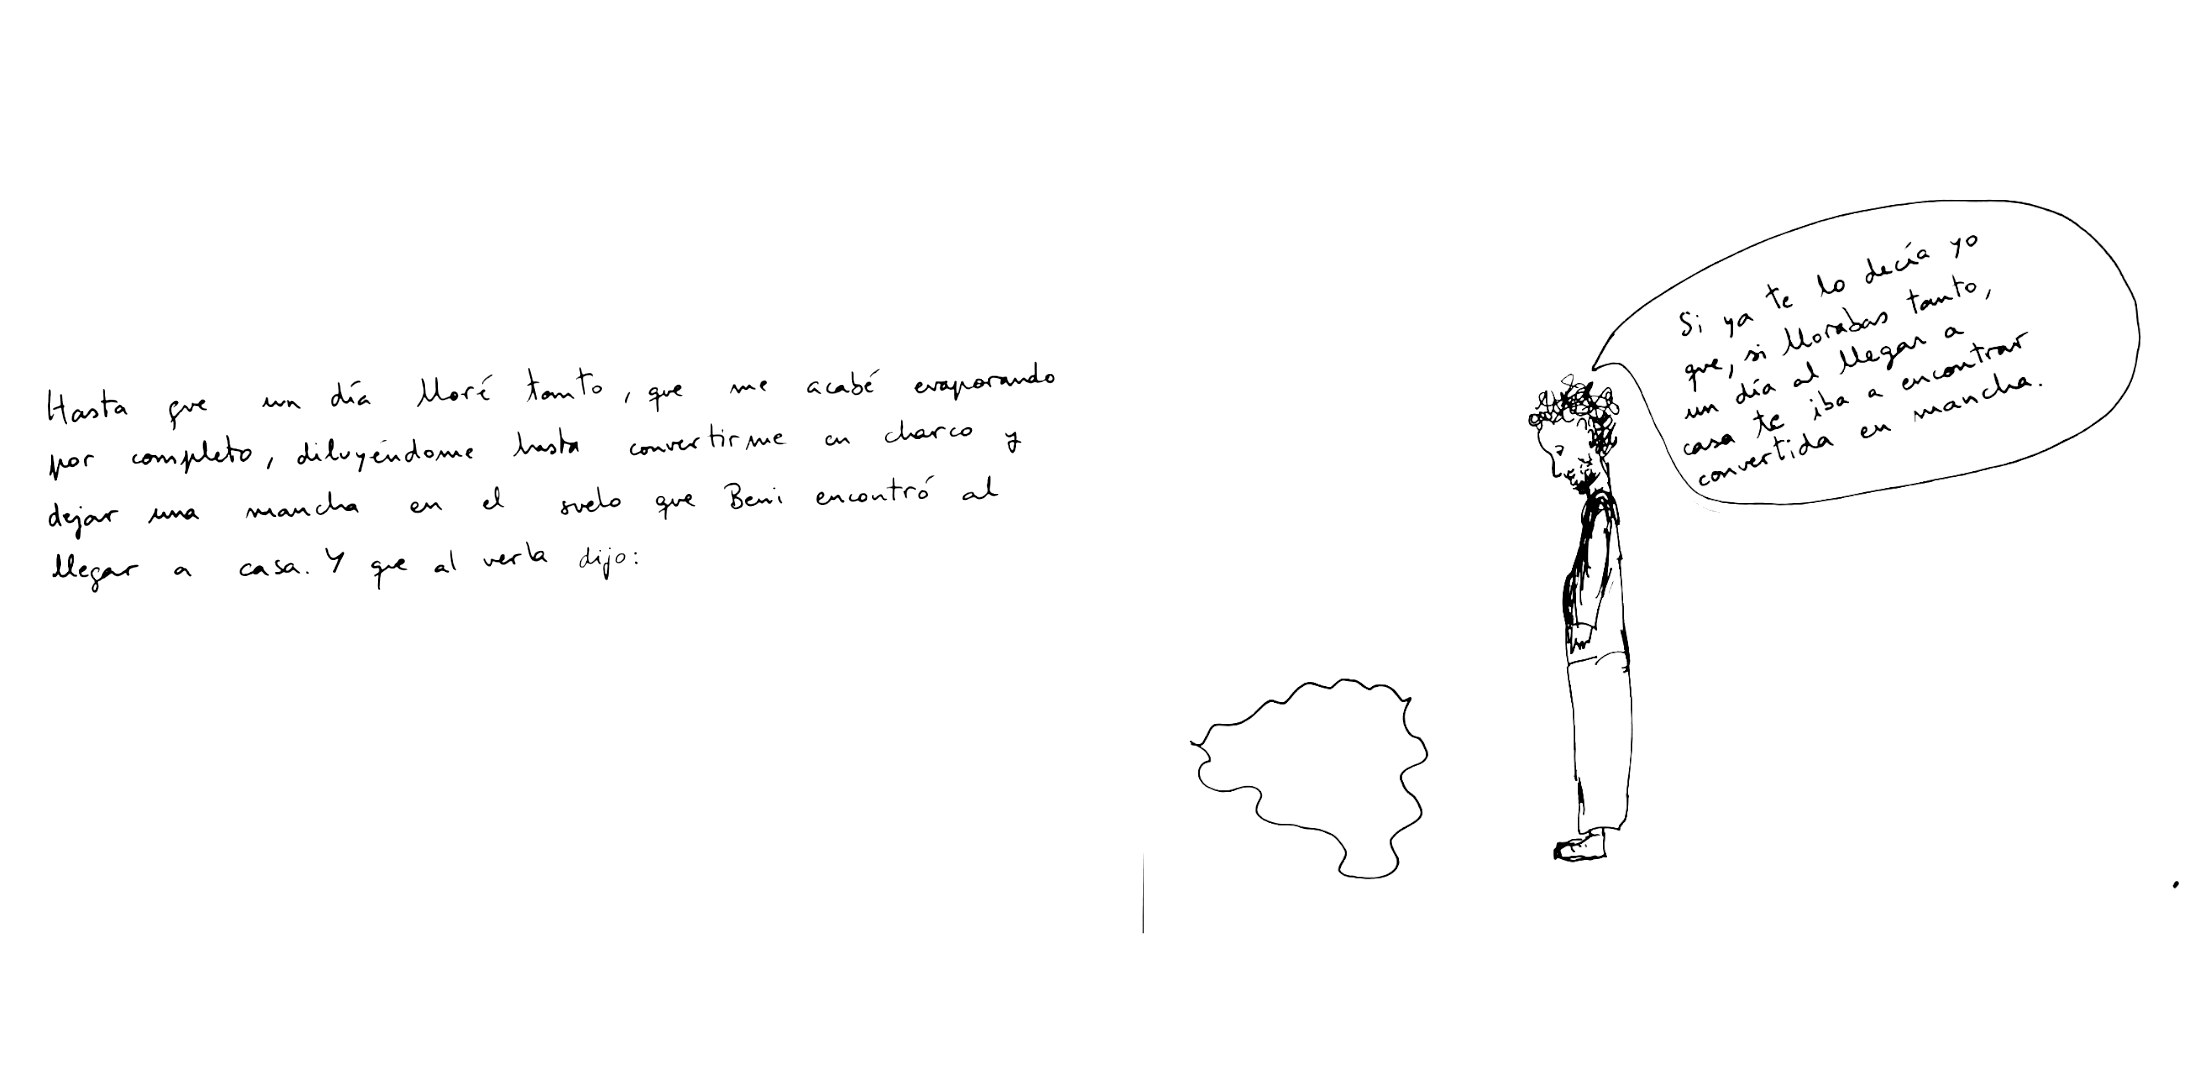 Hasta que un día lloré tanto, que me acabé evaporando
por completo, diluyéndome hasta convertirme en charco y
dejar una mancha en el suelo que Beni encontró al
llegar a casa. Y que al verla dijo:
Si ya te lo decía yo
que, si llorabas tanto,
un día al llegar a
casa te iba a encontrar
convertida en mancha.